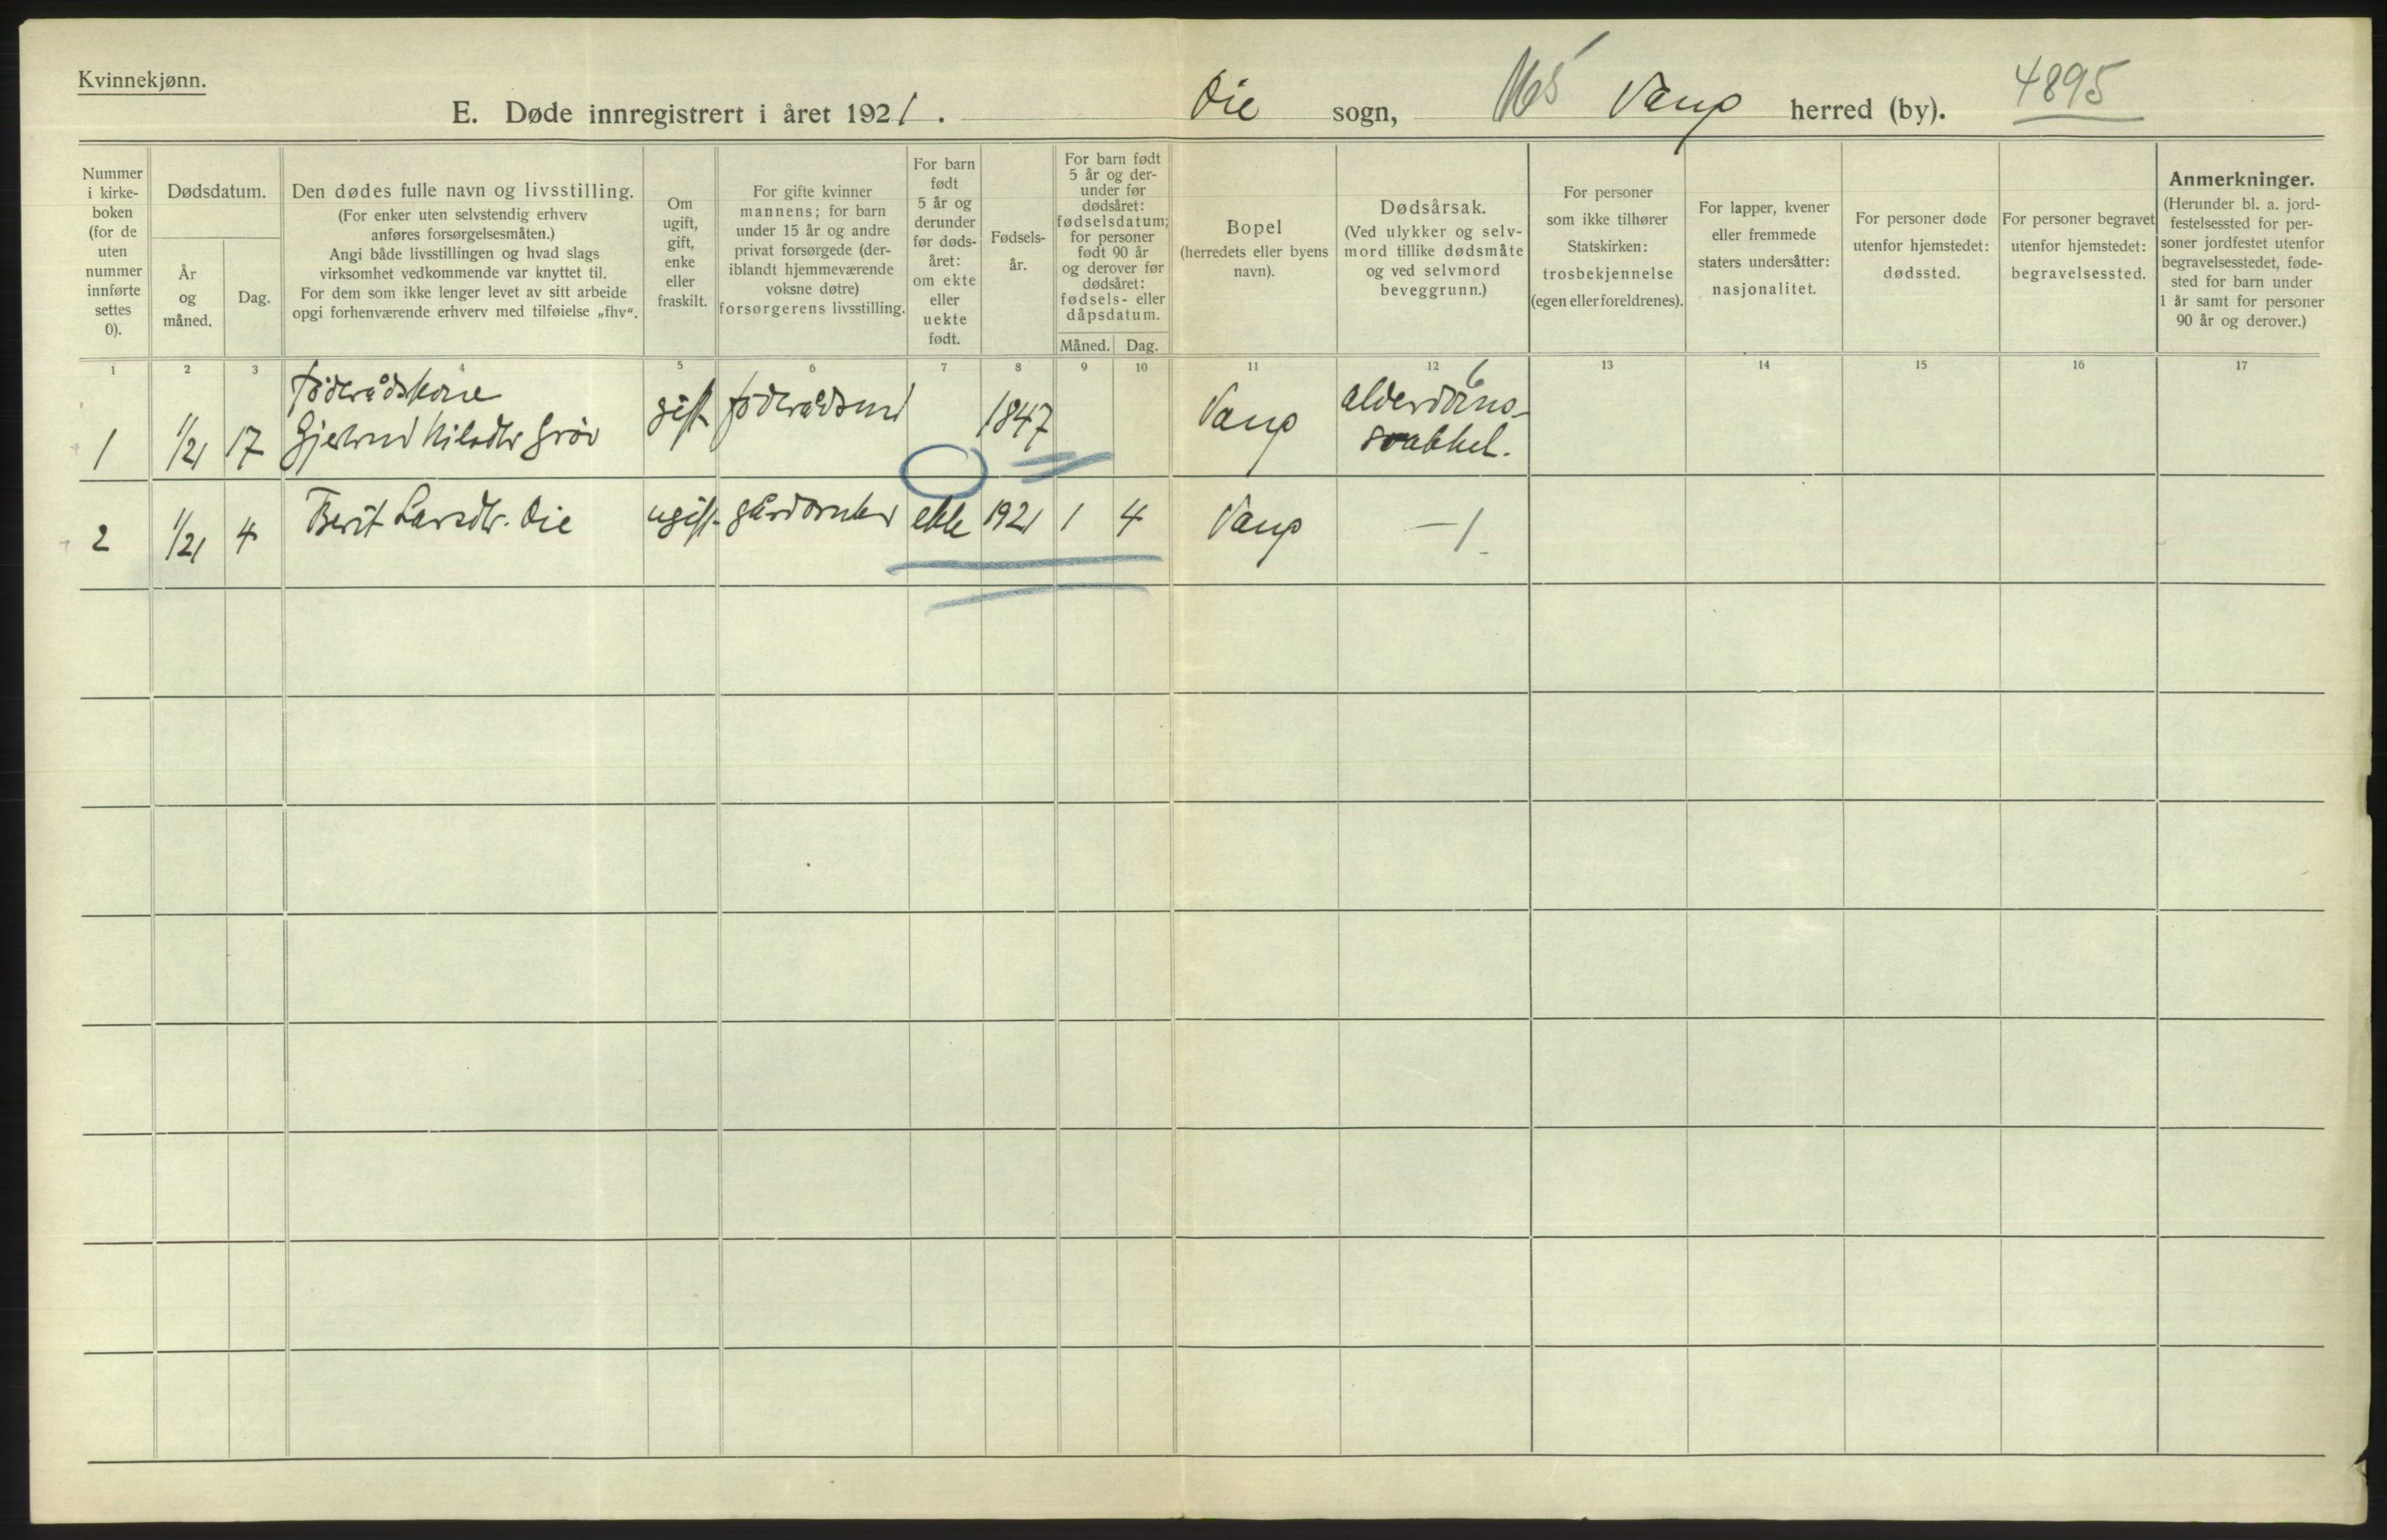 Kvinnekjønn.
E. Døde innregistrert i året 1921. Øie sogn, Vang herred (by). 4895
Nummer i kirke- boken (for de uten nummer innførte settes 0).
Dødsdatum.
År og måned.
Dag.
Den dødes fulle navn og livsstilling.
(For enker uten selvstendig erhverv
anføres forsørgelsesmåten.)
Angi både livsstillingen og hvad slags
virksomhet vedkommende var knyttet til.
For dem som ikke lenger levet av sitt arbeide
opgi forhenværende erhverv med tilføielse „fhv“.
Om
ugift,
gift,
enke
eller
fraskilt.
For gifte kvinner
mannens; for barn
under 15 år og andre
privat forsørgede (der-
iblandt hjemmeværende
voksne døtre)
forsørgerens livsstilling.
For barn
født
5 år og
derunder
før døds-
året:
om ekte
eller
uekte
født.
Fødsels-
år.
For barn født
5 år og der-
under før
dødsåret:
fødselsdatum;
for personer
født 90 år
og derover før
dødsåret:
fødsels- eller
dåpsdatum.
Måned. Dag.
Bopel
(herredets eller byens
navn).
Dødsårsak.
(Ved ulykker og selv-
mord tillike dødsmåte
og ved selvmord
beveggrunn.)
For personer
som ikke tilhører
Statskirken:
trosbekjennelse
(egen eller foreldrenes).
For lapper, kvener
eller fremmede
staters undersåtter:
nasjonalitet.
For personer døde
utenfor hjemstedet:
dødssted.
For personer begravet
utenfor hjemstedet:
begravelsessted.
Anmerkninger.
(Herunder bl. a. jord-
festelsessted for per-
soner jordfestet utenfor
begravelsesstedet, føde-
sted for barn under
1 år samt for personer
90 år og derover.)
1 2 3 4 5 6 7 8 9 10 11 12 13 14 15 16 17
Föderådskone gift föderådsm 1847 Vang alderdoms- 6
1 1/21 17 Gjertrud Nilsdtr Gröv svakkel.
2 1/21 4 Berit Larsdtr. Øie ugift gårdbruker ekte 1921 1 4 Vang —1